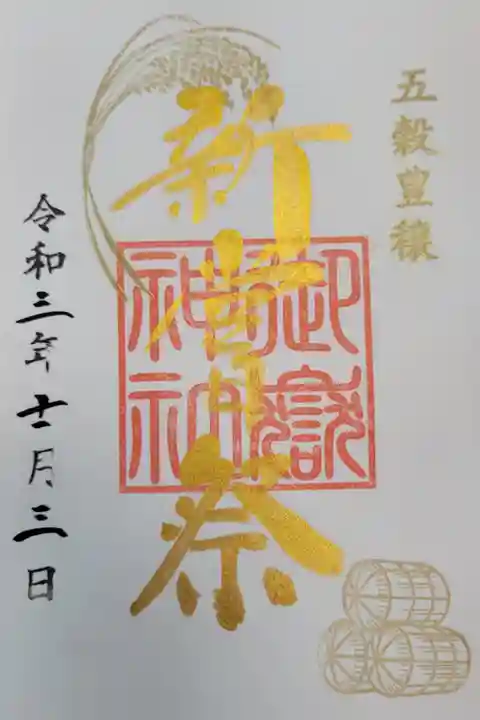 五穀豊穣
新嘗祭
御嶽神社
令和三年十一月三日